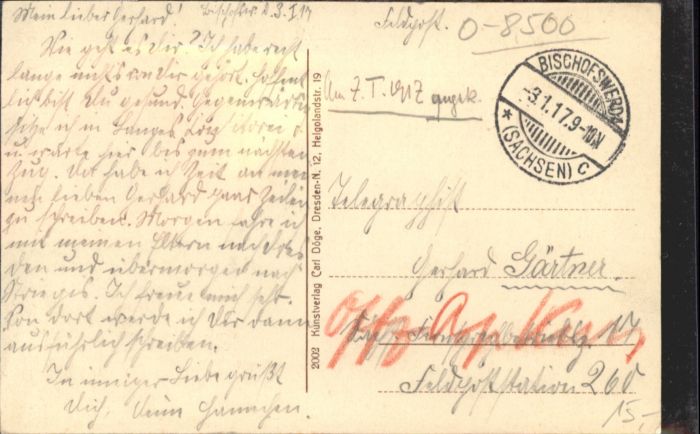 Mein lieber Gerhard! Bischofsw. d. 3.I.17
Wie geht es dir? Ich habe recht
lange nichts von dir gehört. Hoffent
lich bist du gesund. Gegenwärtig
sitze ich in
u. warte hier bis zum nächsten
Zug. Da habe ich Zeit an mei
nen lieben Gerhard paar Zeilen
zu schreiben. Morgen fahre ich
mit meinen Eltern nach Dres
den und übermorgen nach
Ich freue mich sehr.
Von dort werde ich dir dann
ausführlich schreiben.
In inniger Liebe grüßt
Dich, Deine Hannchen.
2002 Kunstverlag Carl Döge, Dresden-N. 12, Helgolandstr. 19
Feldpost.
0-8500
Am 7.I.1917
BISCHOFSWERDA
-3.1.17.9-10N
* (SACHSEN) c
Telegraphist
Gerhard Gärtner.
17,
Feldpoststation 260
15,-